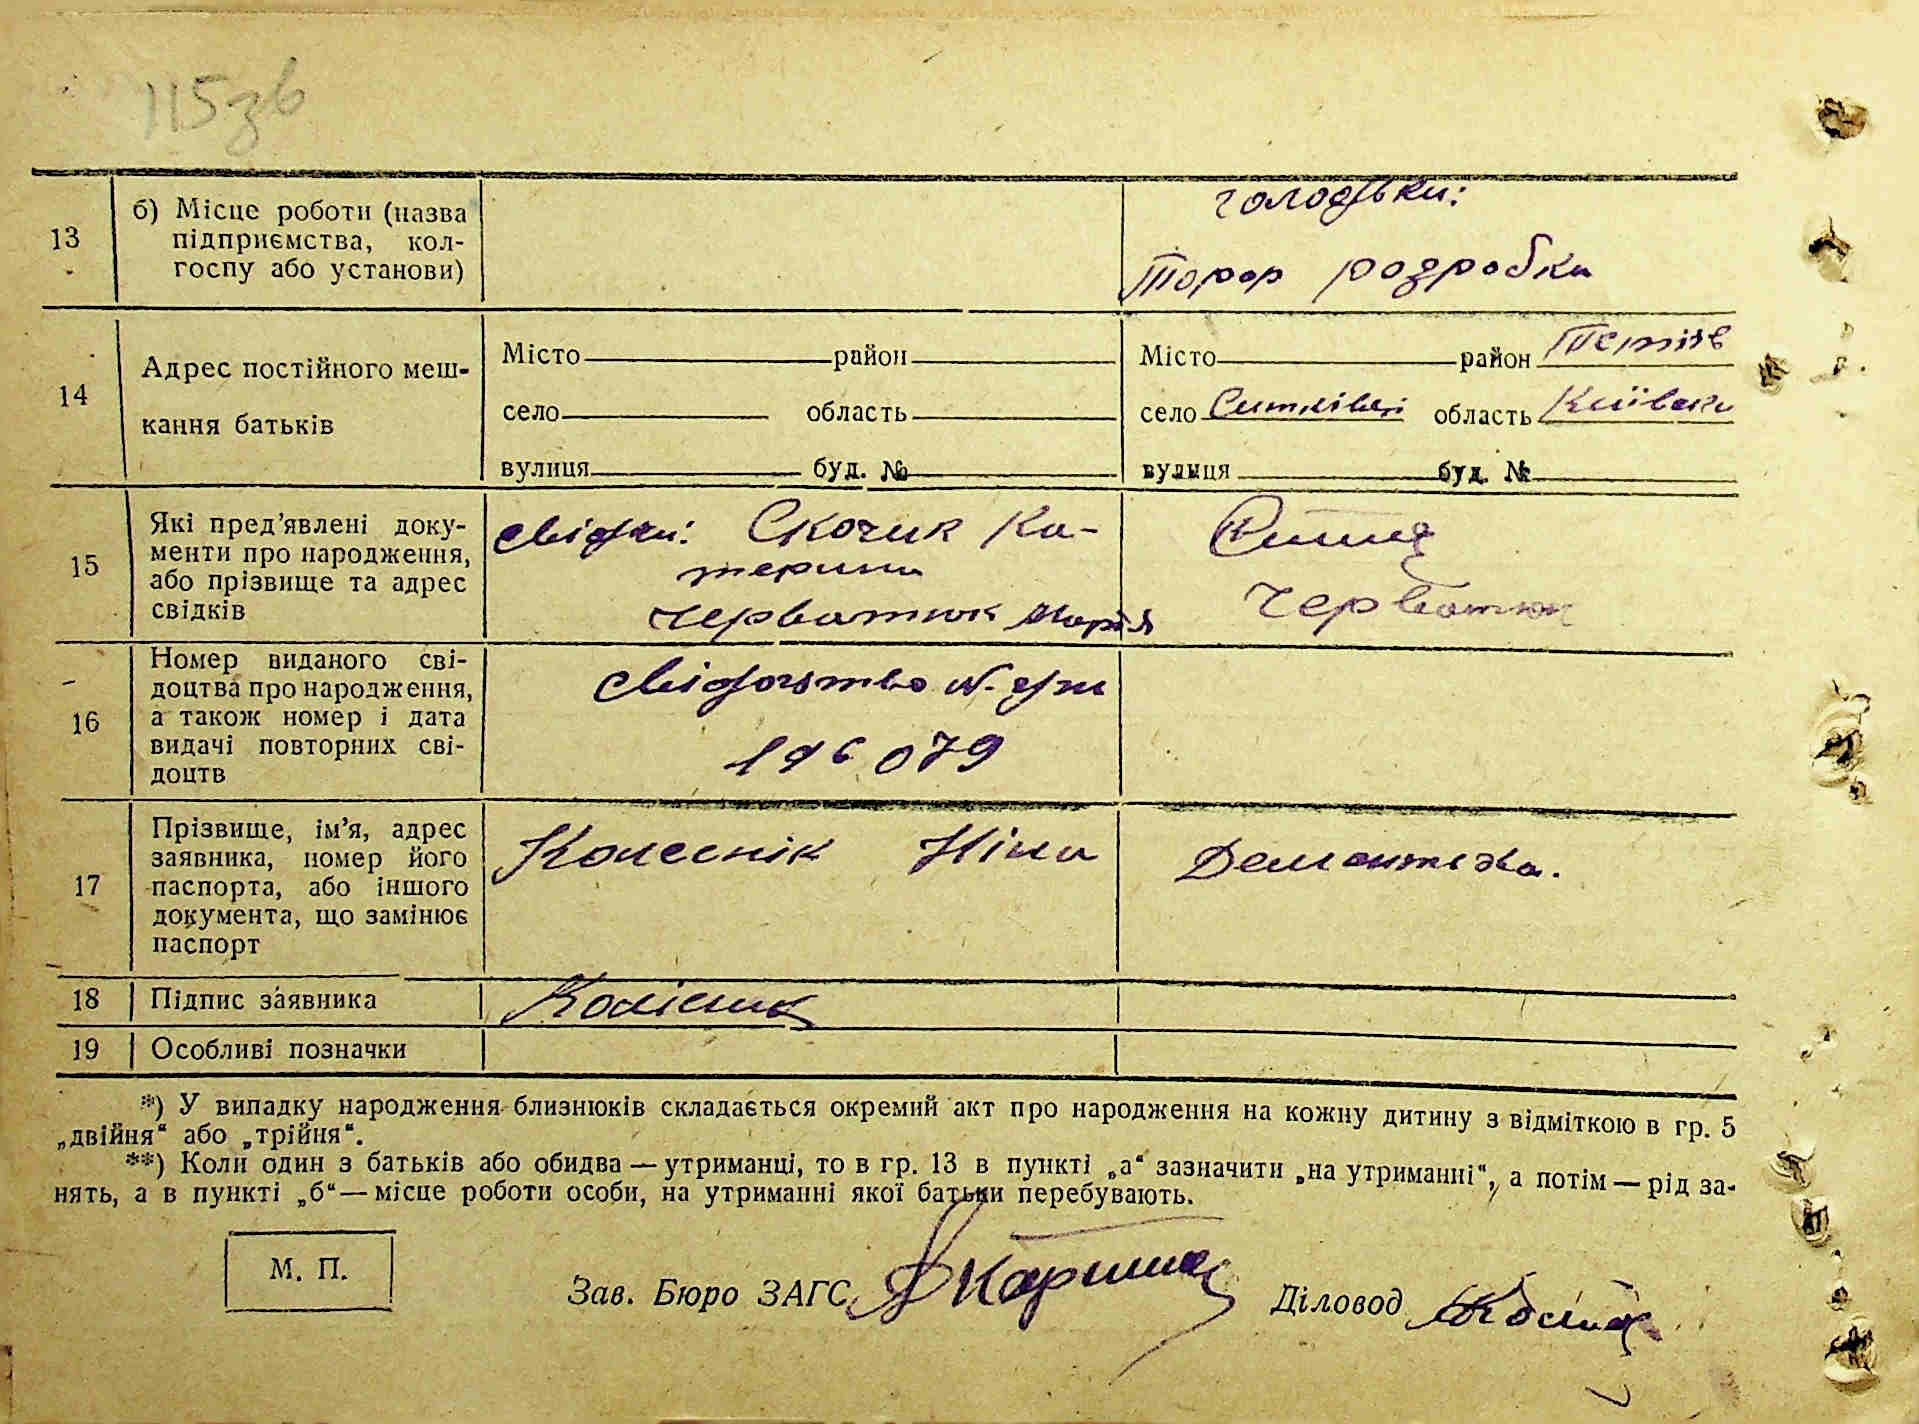 115зв
13
б) Місце роботи (назва
підприємства, кол-
госпу або установи)
голодьки:
Торф розробки
14
Адрес постійного меш-
кання батьків
Місто район
село область
вулиця буд. №
Місто район Тетіїв
село область Київськ
вулиця буд. №
15
Які пред'явлені доку-
менти про народження,
або прізвище та адрес
свідків
свідки: Скочик Ка-
терина
Черватюк Марія
Черватюк
16
Номер виданого сві-
доцтва про народження,
а також номер і дата
видачі повторних сві-
доцтв
свідоцтво №
196079
17
Прізвище, ім'я, адрес
заявника, номер його
паспорта, або іншого
документа, що замінює
паспорт
Колеснік Ніна
18
Підпис заявника
Колісник
19
Особливі позначки
*) У випадку народження близнюків складається окремий акт про народження на кожну дитину з відміткою в гр. 5
„двійня“ або „трійня“.
**) Коли один з батьків або обидва — утриманці, то в гр. 13 в пункті „а“ зазначити „на утриманні“, а потім — рід за-
нять, а в пункті „б“ — місце роботи особи, на утриманні якої батьки перебувають.
М. П.
Зав. Бюро ЗАГС
Діловод